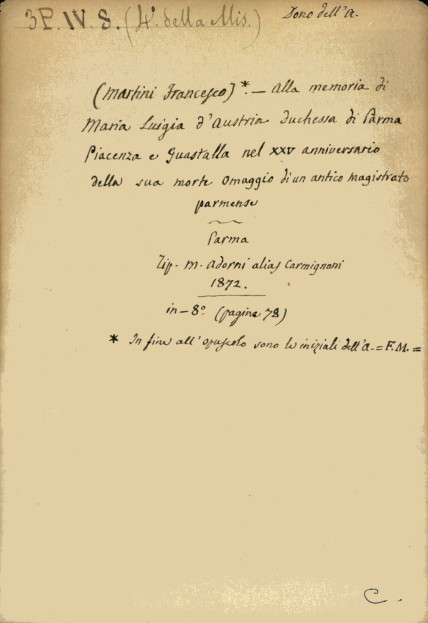 3P. IV. S. (4.ª della Mis.) Dono dell'A.
(Martini Francesco)*. — Alla memoria di
Maria Luigia d'Austria Duchessa di Parma
Piacenza e Guastalla nel XXV anniversario
della sua morte omaggio di un antico magistrato
parmense
Parma
Tip. M. Adorni alias Carmignani
1872.
in-8º (pagine 78)
* In fine all'opuscolo sono le iniziali dell'A. = F. M. =
C.